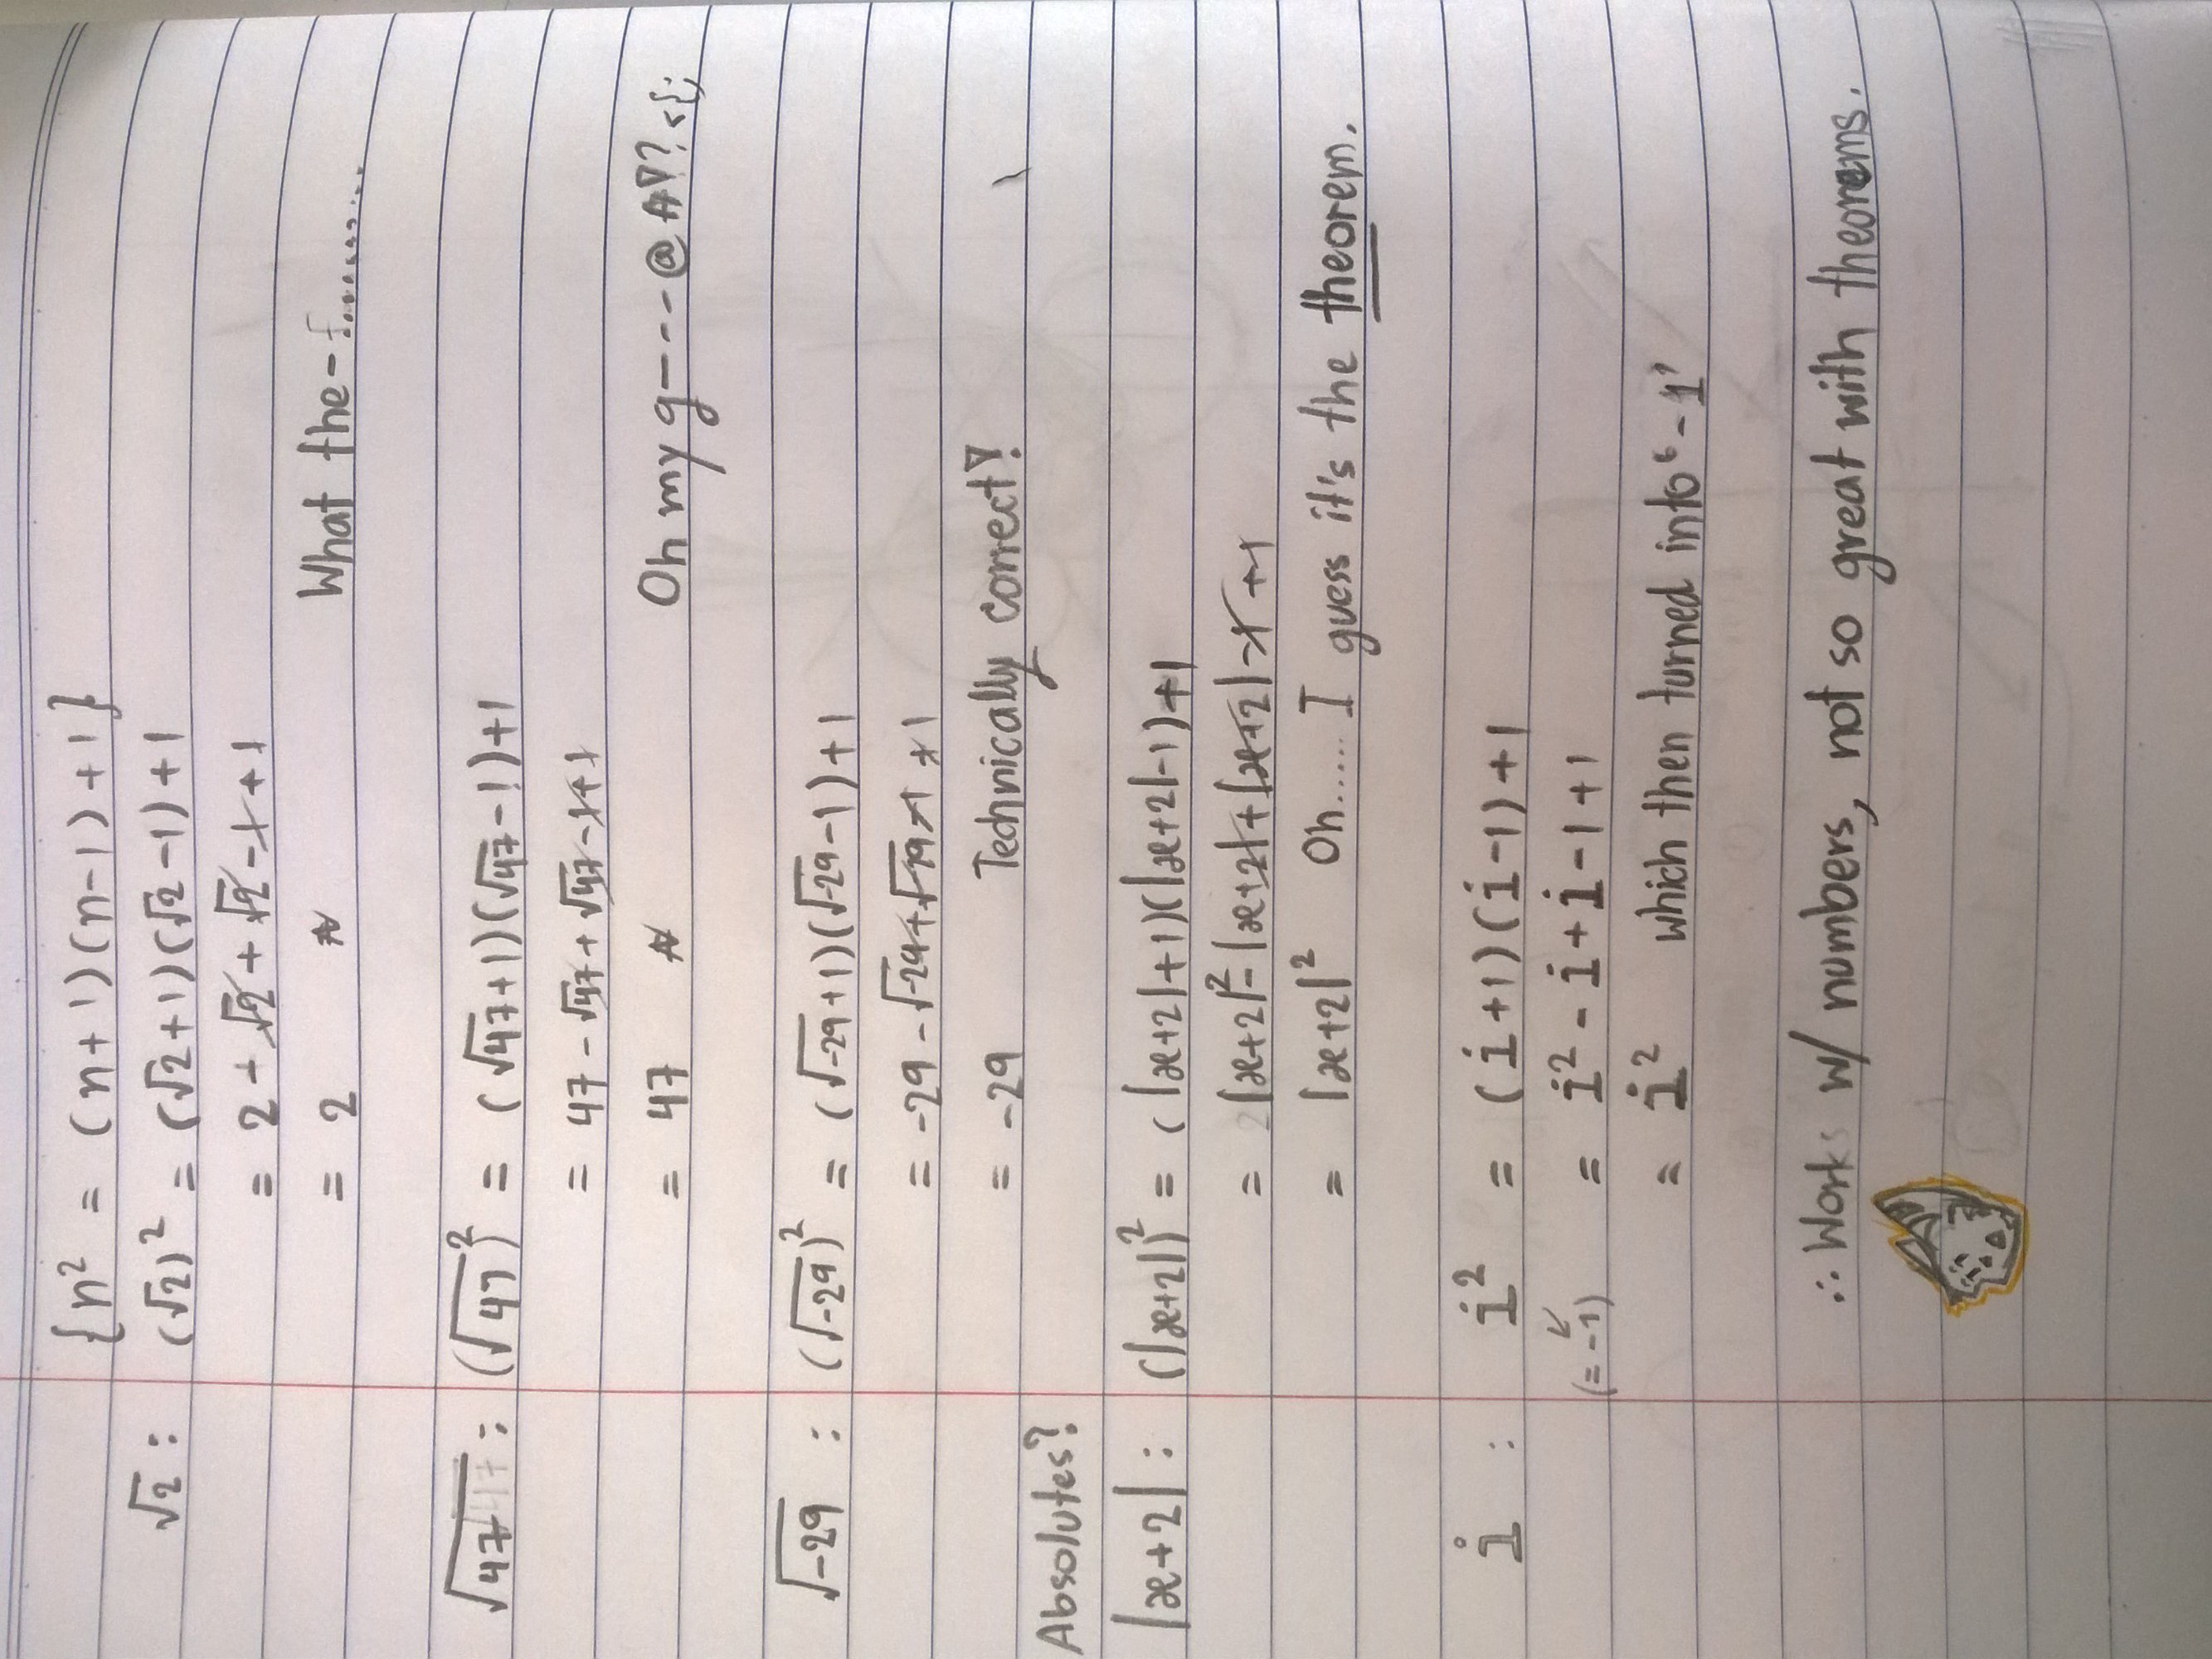 {n² = (n+1)(n-1)+1}
√2 : (√2)² = (√2+1)(√2-1)+1
= 2-√2+√2-1+1
= 2 What the-
√47 : (√47)² = (√47+1)(√47-1)+1
= 47-√47+√47-1+1
= 47 Oh my g----@#!?
√-29 : (√-29)² = (√-29+1)(√-29-1)+1
= -29-√-29+√-29-1+1
= -29 Technically correct!
Absolutes?
|x+2| : (|x+2|)² = (|x+2|+1)(|x+2|-1)+1
= |x+2|²-|x+2|+|x+2|-1+1
= |x+2|² Oh...... I guess it's the theorem.
i : i² = (i+1)(i-1)+1
(=-1) = i²-i+i-1+1
= i² which then turned into '-1'
∴ Works w/ numbers, not so great with theorems.